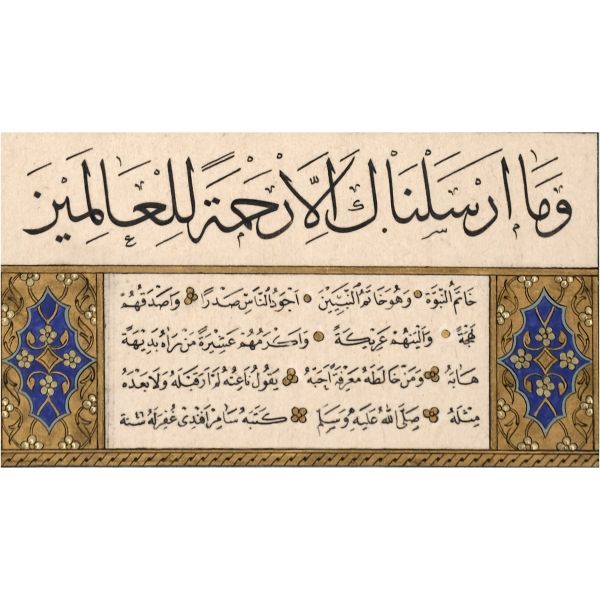 وَمَا اَرْسَلْنَاكَ اِلَّا رَحْمَةً لِلْعَالَمِينَ
خَاتَمُ النُّبُوَّةِ وَهُوَ خَاتَمُ النَّبِيِّينَ اَجْوَدُ النَّاسِ صَدْرًا وَاَصْدَقُهُمْ
لَهْجَةً وَاَلْيَنُهُمْ عَرِيكَةً وَاَكْرَمُهُمْ عَشِيْرَةً مَنْ رَاٰهُ بَدِيهَةً
هَابَهُ وَمَنْ خَالَطَهُ مَعْرِفَةً اَحَبَّهُ يَقُولُ نَاعِتُهُ لَمْ اَرَ قَبْلَهُ وَلَا بَعْدَهُ
مِثْلَهُ صَلَّى اللهُ عَلَيْهِ وَسَلَّمَ كَتَبَهُ سامر افندى غُفِرَلَهُ